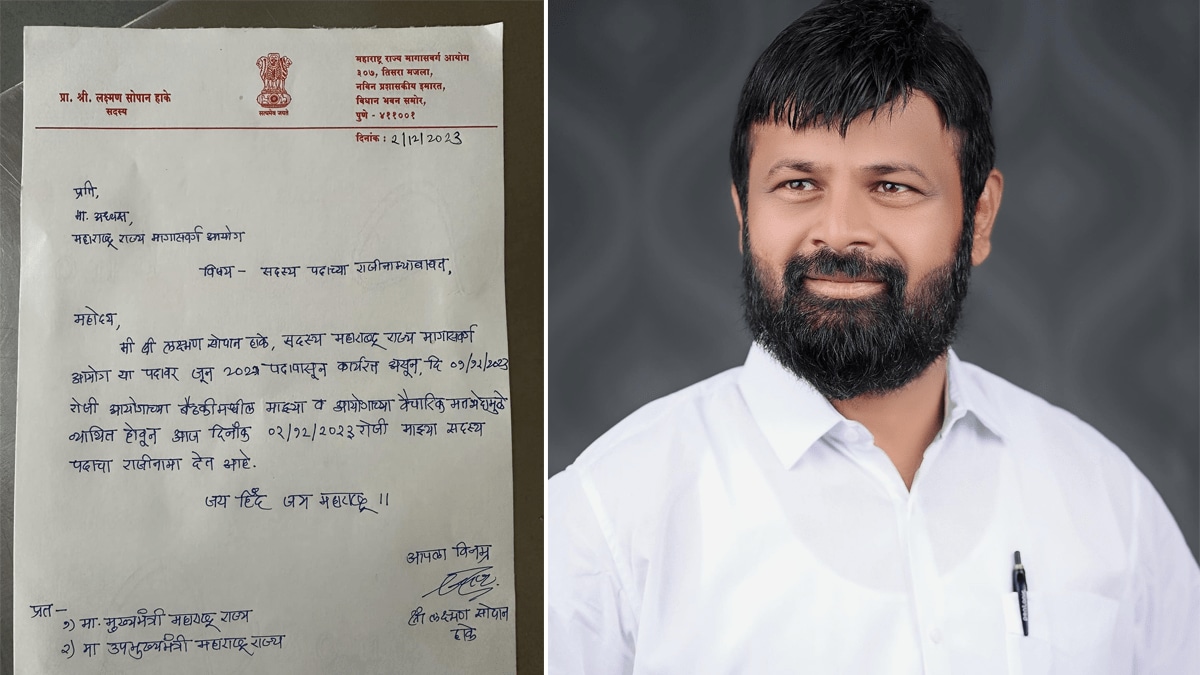 प्रा. श्री. लक्ष्मण सोपान हाके
सदस्य
सत्यमेव जयते
महाराष्ट्र राज्य मागासवर्ग आयोग
३०७, तिसरा मजला,
नविन प्रशासकीय इमारत,
विधान भवन समोर,
पुणे - ४११००१
दिनांक : २/12/2023
प्रति,
मा. अध्यक्ष,
महाराष्ट्र राज्य मागासवर्ग आयोग
विषय - सदस्य पदाच्या राजीनाम्याबाबत,
महोदय,
मी श्री लक्ष्मण सोपान हाके, सदस्य महाराष्ट्र राज्य मागासवर्ग
आयोग या पदावर जून 2021 पदापासून कार्यरत असून, दि ०१/१२/२०२३
रोजी आयोगाच्या बैठकीमधील माझ्या व आयोगाच्या वैचारिक मतभेदामुळे
व्यथित होवून आज दिनांक ०२/१२/२०२३ रोजी माझ्या सदस्य
पदाचा राजीनामा देत आहे.
जय हिंद जय महाराष्ट्र !!
आपला विनम्र
श्री लक्ष्मण सोपान
हाके
प्रत -
१) मा. मुख्यमंत्री महाराष्ट्र राज्य
२) मा उपमुख्यमंत्री महाराष्ट्र राज्य